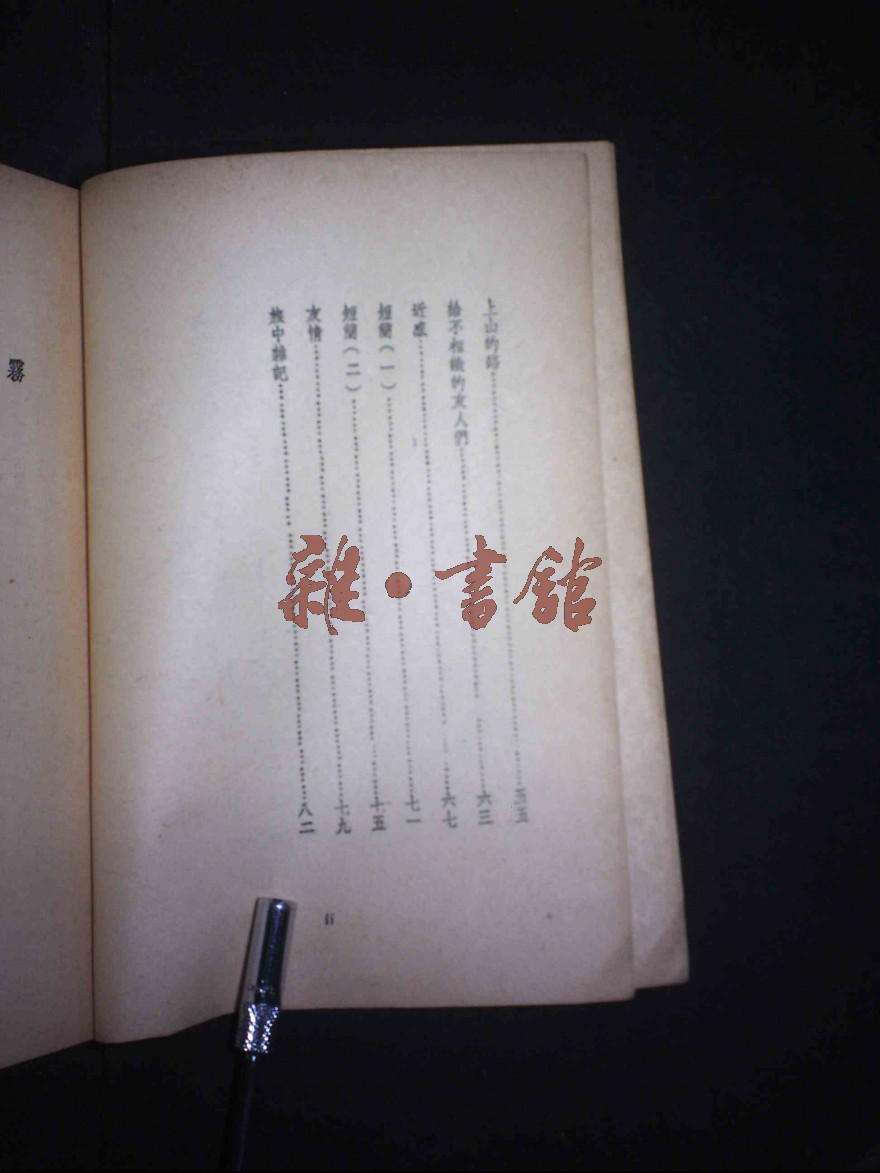 上山的路……五五
給不相識的友人們……六三
近感……六七
短簡(一)……七一
短簡(二)……七五
友情……七九
旅中雜記……八二
ii
霧
雜•書館